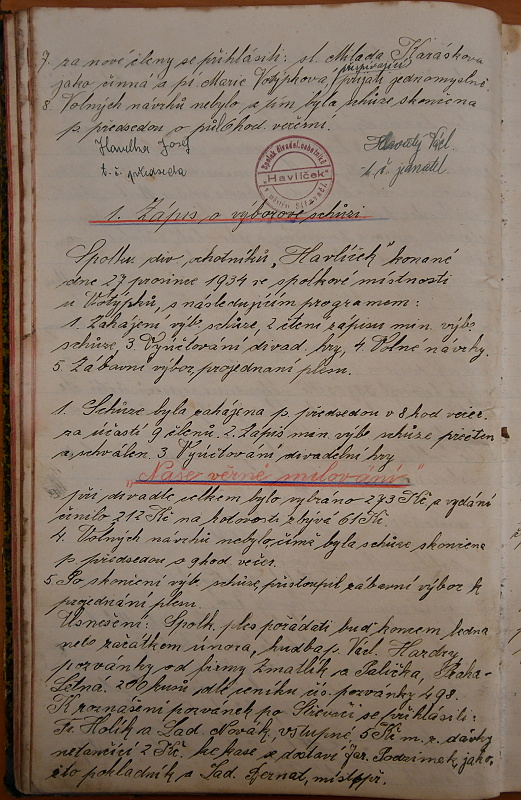 7. za nové členy se přihlásili: sl. Mlada Karáskova
jako činná a pí. Marie Votýpkova, přispívající přijati jednomyslně
8. Volných návrhů nebylo a tím byla schůze skončena
p. předsedou o půl 6 hod. večerní.
Havelka Josef
t. č. předseda
Václ.
t. č. jednatel
Spolek divadel. ochotníků
"Havlíček"
1. Zápis o výborové schůzi
Spolku div. ochotníků "Havlíček" konané
dne 27 prosince 1934 ve spolkové místnosti
u Votýpků, s následujícím programem:
1. Zahájení výb. schůze, 2 čtení zápisu min. výb.
schůze, 3. Vyúčtování divad. hry, 4. Volné návrhy.
5. Zábavní výbor, projednaní plesu.
1. Schůze byla zahájena p. předsedou v 8 hod večer.
za účasti 9 členů. 2. Zápis min. výb schůze přečten
a schválen. 3. Vyúčtování divadelní hry
"Naše věrné milování"
při divadle celkem bylo vybráno 273 Kč a vydání
činilo 212 Kč na hotovosti zbývá 61 Kč.
4. Volných návrhů nebylo čímž byla schůze skončena
p. předsedou o 9 hod. večer.
5. Po skončení výb. schůze, přistoupil zábavní výbor k
projednání plesu.
Usnešení: Spolk. ples pořádati buď koncem ledna
nebo začátkem února, hudba p. Václ. Hardey
pozvánky od firmy Zmatlík a Palička, Praha-
Letná. 200 kusů dle ceníku čís. pozvánky 498.
K roznášení pozvánek po Střevíči se přihlásili:
Fr. Holík a Lad. Novák, vstupné 5 Kč m. z. dávky
netančící 2 Kč. ke kase se dostaví Jar. Podzimek, jako-
žto pokladník a Lad. Bernat, místopř.